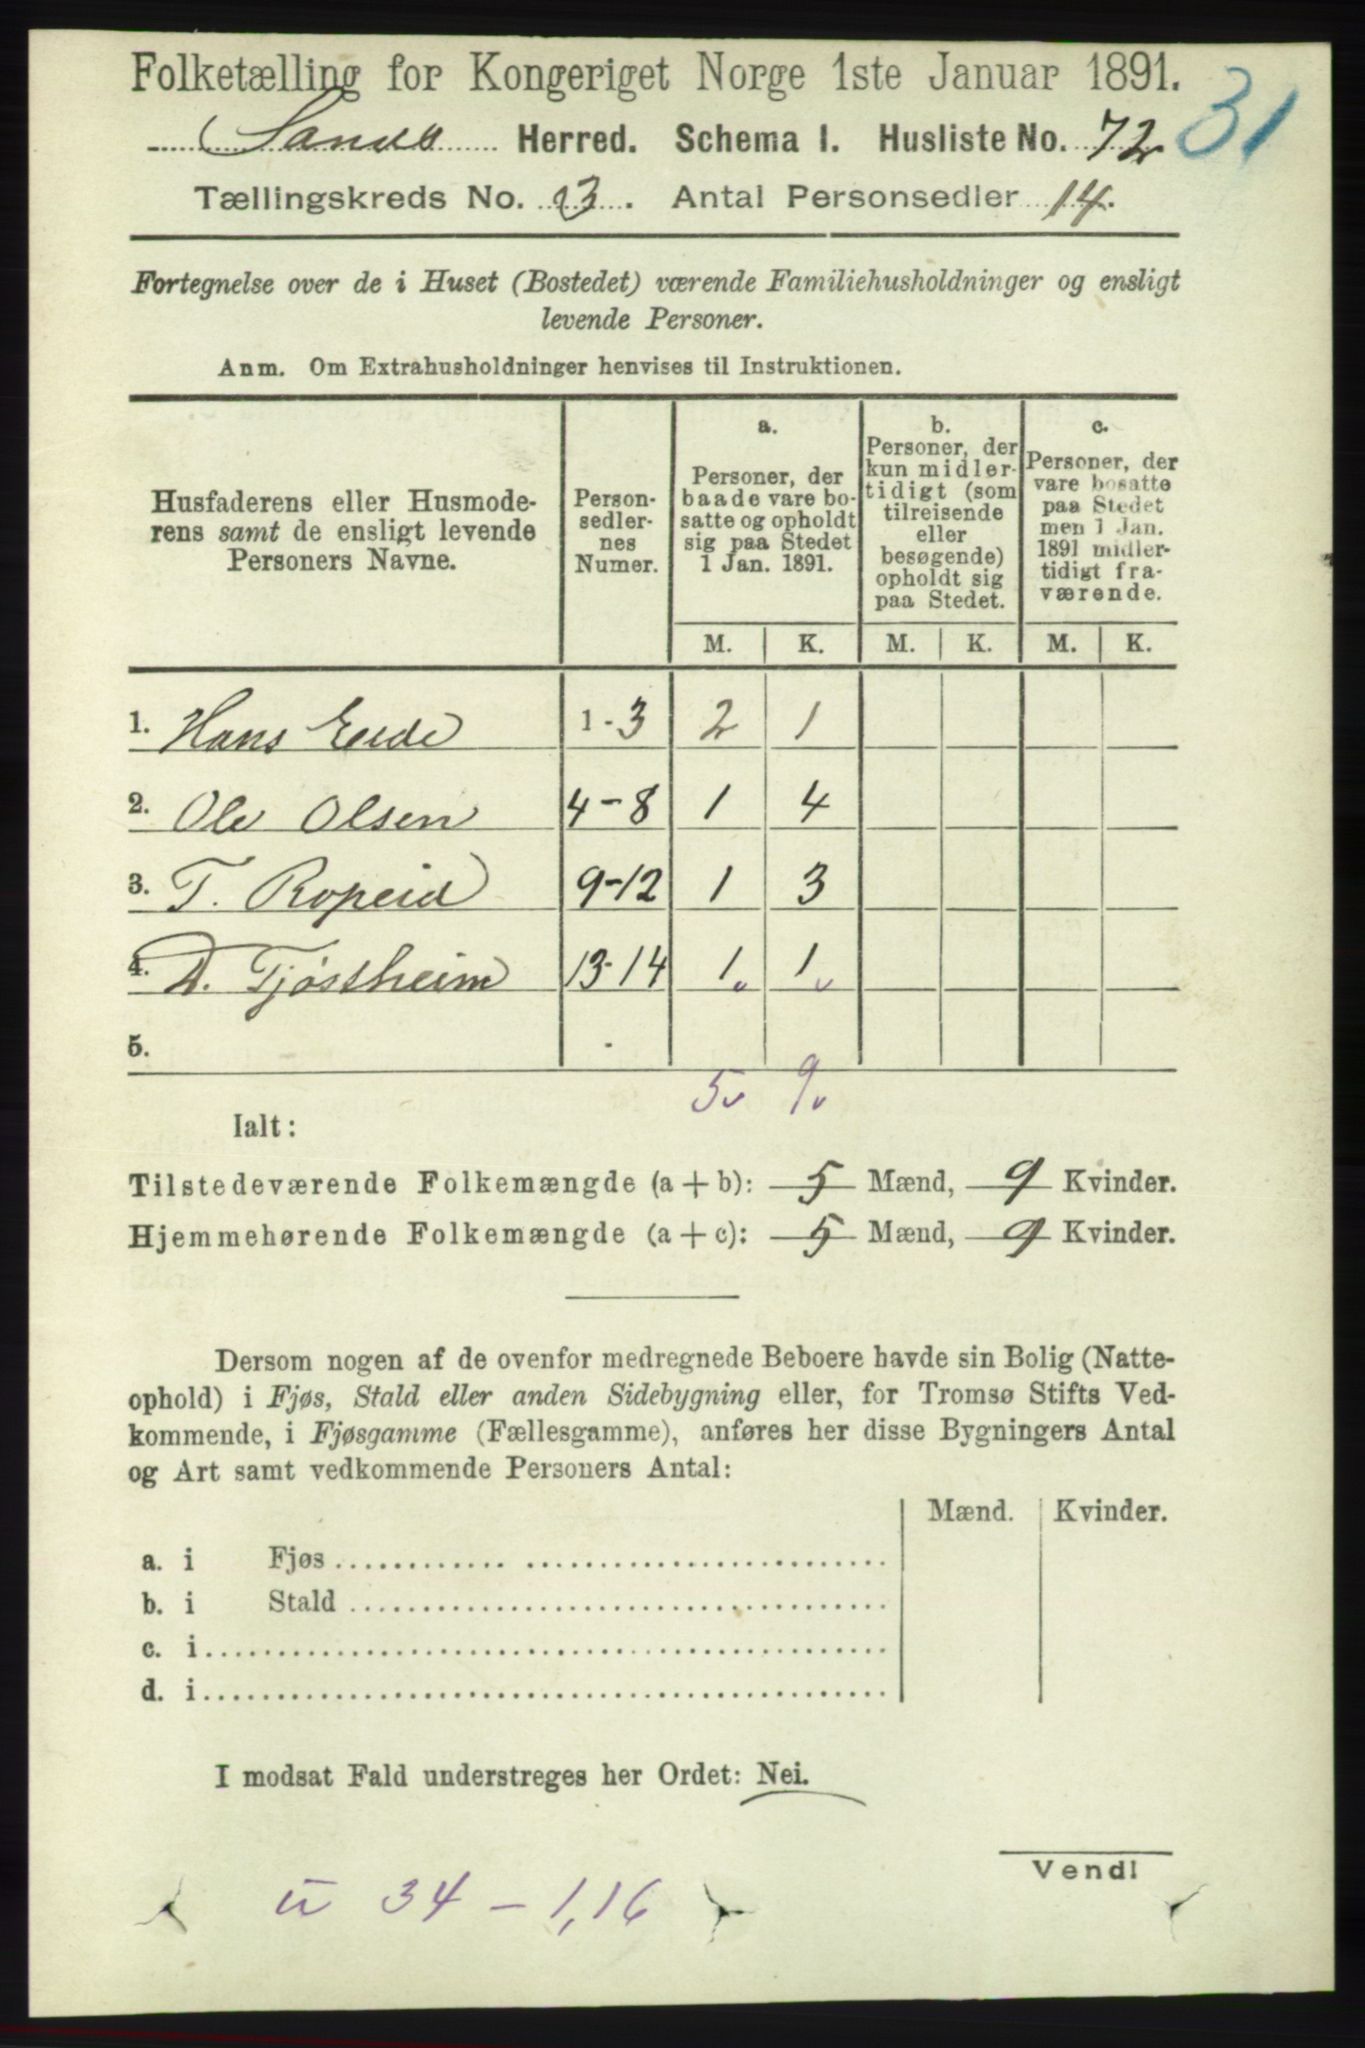 Folketælling for Kongeriget Norge 1ste Januar 1891.
Herred. Schema I. Husliste No. 72 31
Tællingskreds No. 3. Antal Personsedler 14.
Fortegnelse over de i Huset (Bostedet) værende Familiehusholdninger og ensligt
levende Personer.
Anm. Om Extrahusholdninger henvises til Instruktionen.
Husfaderens eller Husmode-
rens samt de ensligt levende
Personers Navne.
Person-
sedler-
nes
Numer.
a.
Personer, der
baade vare bo-
satte og opholdt
sig paa Stedet
1 Jan. 1891.
b.
Personer, der
kun midler-
tidigt (som
tilreisende
eller
besøgende)
opholdt sig
paa Stedet.
c.
Personer, der
vare bosatte
paa Stedet
men 1 Jan.
1891 midler-
tidigt fra-
værende.
M. K. M. K. M. K.
1. Hans 1-3 2 1
2. Ole Olsen 4-8 1 4
3. T. Ropeid 9-12 1 3
4. D. Tjøstheim 13-14 1 1
5. -
5 9
Ialt:
Tilstedeværende Folkemængde (a + b): 5 Mænd, 9 Kvinder.
Hjemmehørende Folkemængde (a + c): 5 Mænd, 9 Kvinder.
Dersom nogen af de ovenfor medregnede Beboere havde sin Bolig (Natte-
ophold) i Fjøs, Stald eller anden Sidebygning eller, for Tromsø Stifts Ved-
kommende, i Fjøsgamme (Fællesgamme), anføres her disse Bygningers Antal
og Art samt vedkommende Personers Antal:
Mænd. Kvinder.
a. i Fjøs
b. i Stald
c. i
d. i
I modsat Fald understreges her Ordet: Nei.
Vend!
34 - 1,16